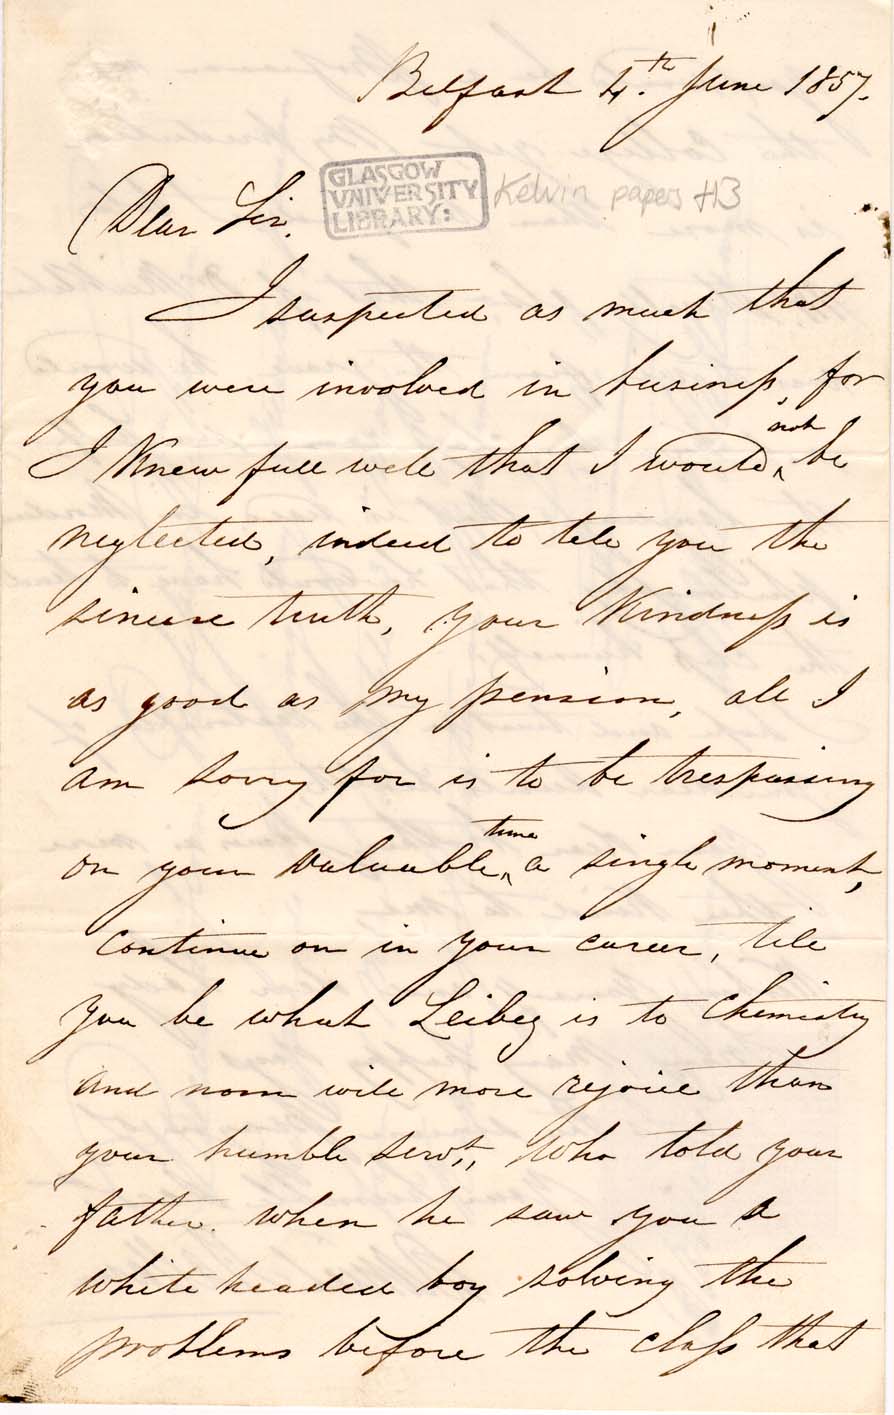 Belfast 4.th June 1857.
GLASGOW
UNIVERSITY
LIBRARY:
Kelvin papers H3
Dear Sir.
I suspected as much that
you were involved in business, for
I Knew full well that I would not be
neglected, indeed to tell you the
sincere truth, your Kindness is
as good as my pension, all I
am sorry for is to be trespassing
on your valuable time a single moment,
continue on in your career, till
you be what Leibeg is to Chemistry
and none will more rejoice than
your humble servt., who told your
father when he saw you a
white headed boy solving the
problems before the class that